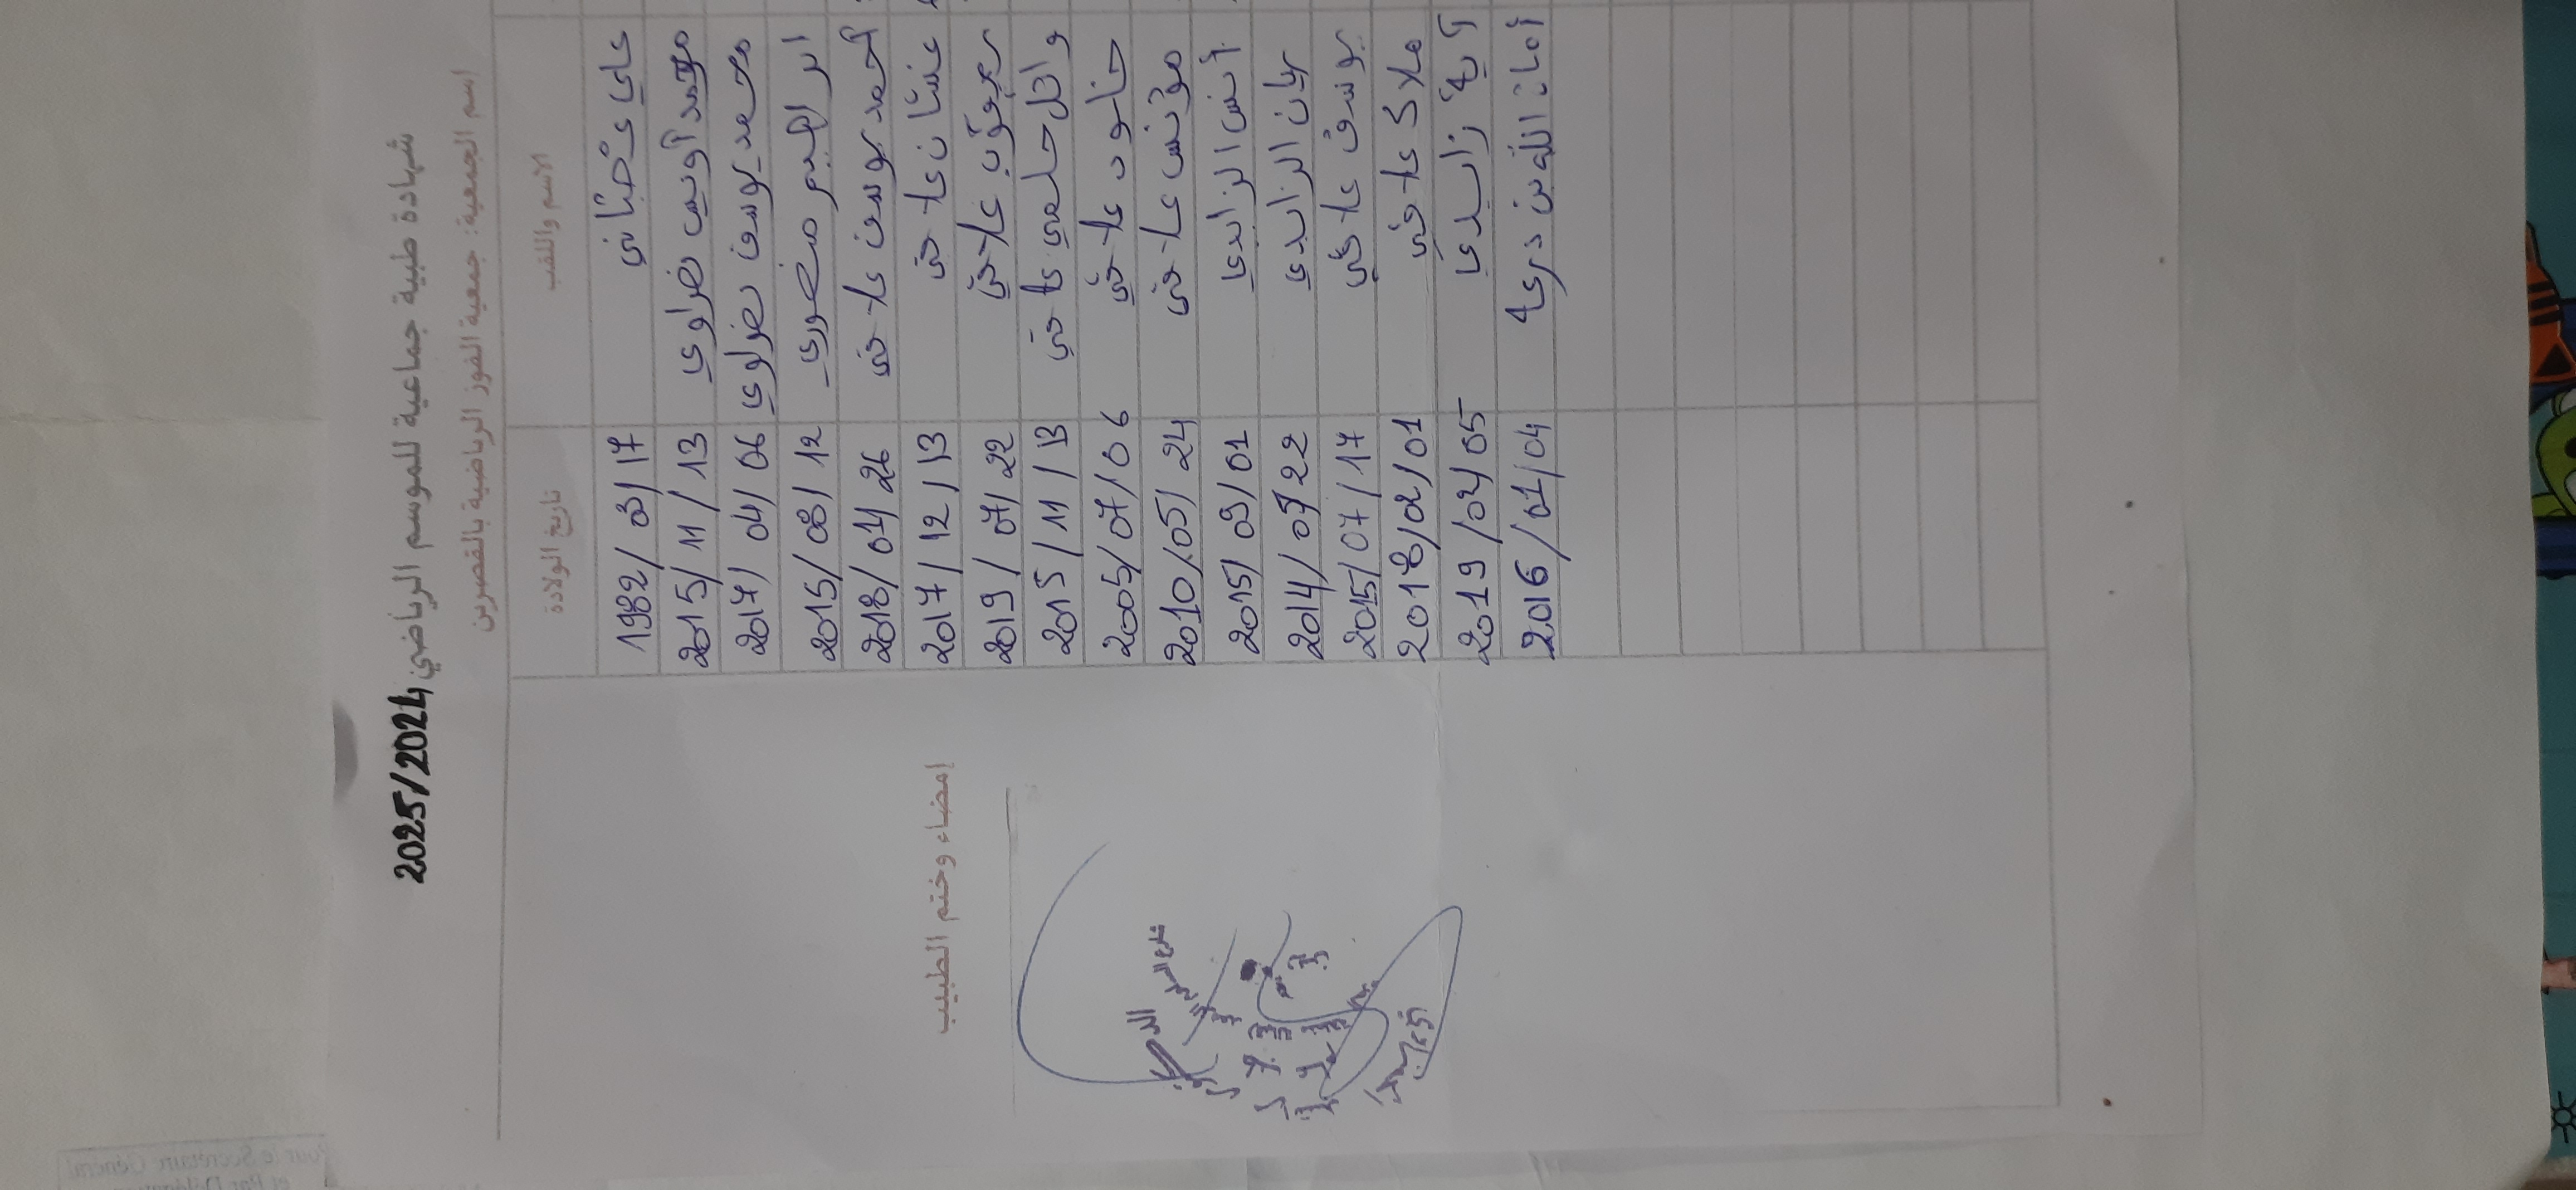 شهادة طبية جماعية للموسم الرياضي 2025/2024
اسم الجمعية: جمعية الفوز الرياضية بالقصرين
الاسم واللقب تاريخ الولادة
علي عصباني 1982/03/17
محمد أويس نصراوي 2015/11/13
محمد يوسف نصراوي 2017/04/06
ابراهيم منصوري 2015/08/12
أحمد يوسف عاحي 2018/04/26
غسان عاحي 2017/12/13
يعقوب عاحي 2019/07/22
وائل حلمي عاحي 2015/11/13
خلود عاحي 2005/07/06
مؤنس عاحي 2010/05/24
أنس الزايدي 2015/09/01
ريان الزايدي 2014/07/22
يوسف عاحي 2015/07/17
ملاك عاحي 2018/02/01
آية زايدي 2019/04/05
أمان الله بن درعة 2016/01/04
إمضاء وختم الطبيب
Pour le Secrétaire Général